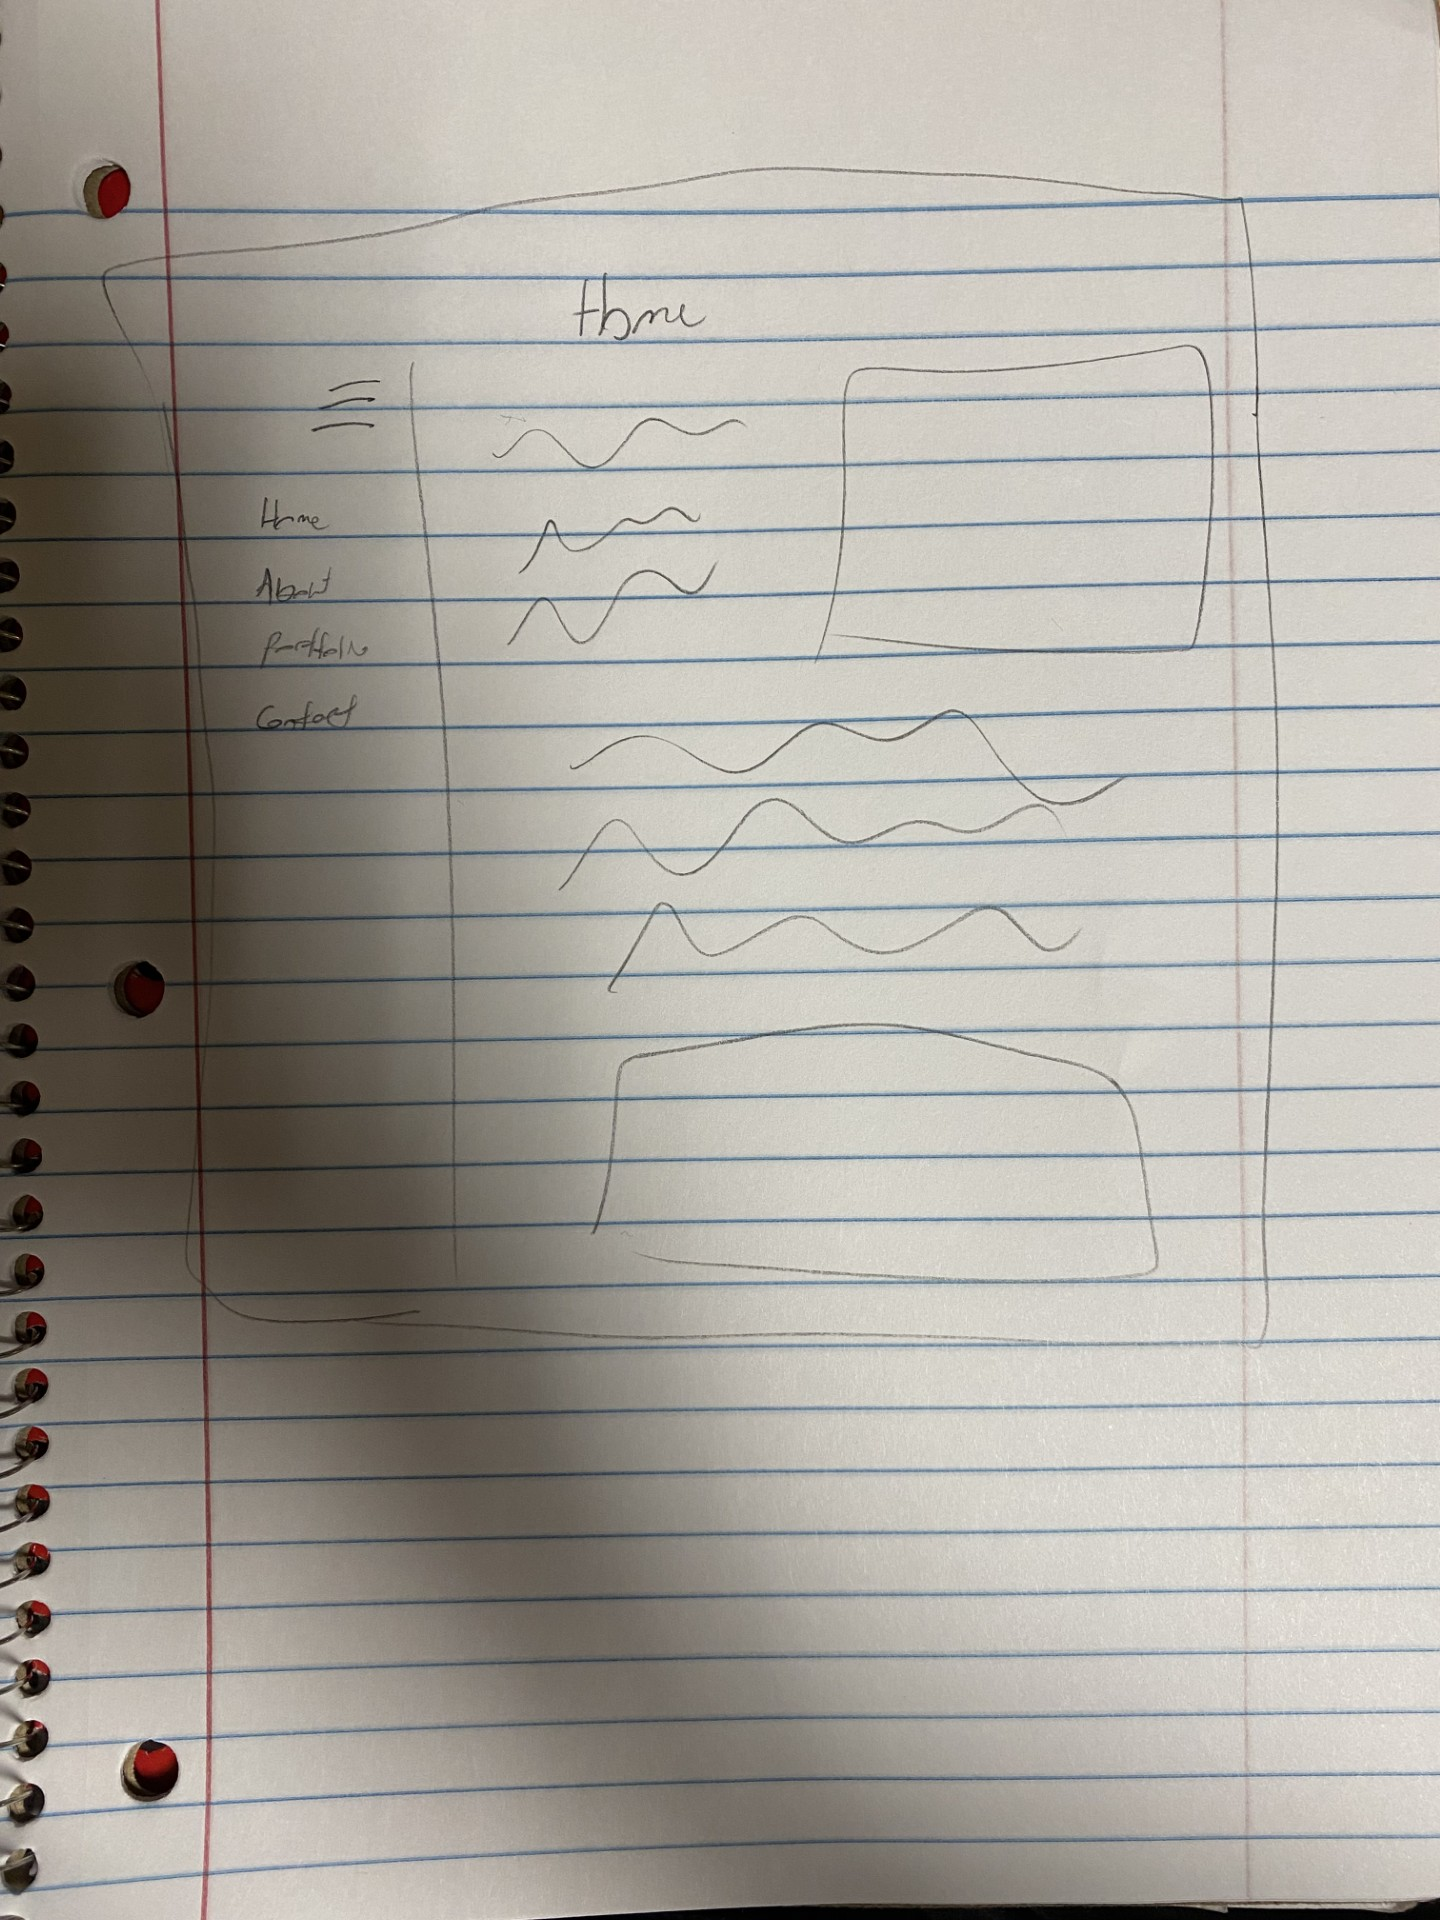 Home
Home
About
Portfolio
Contact